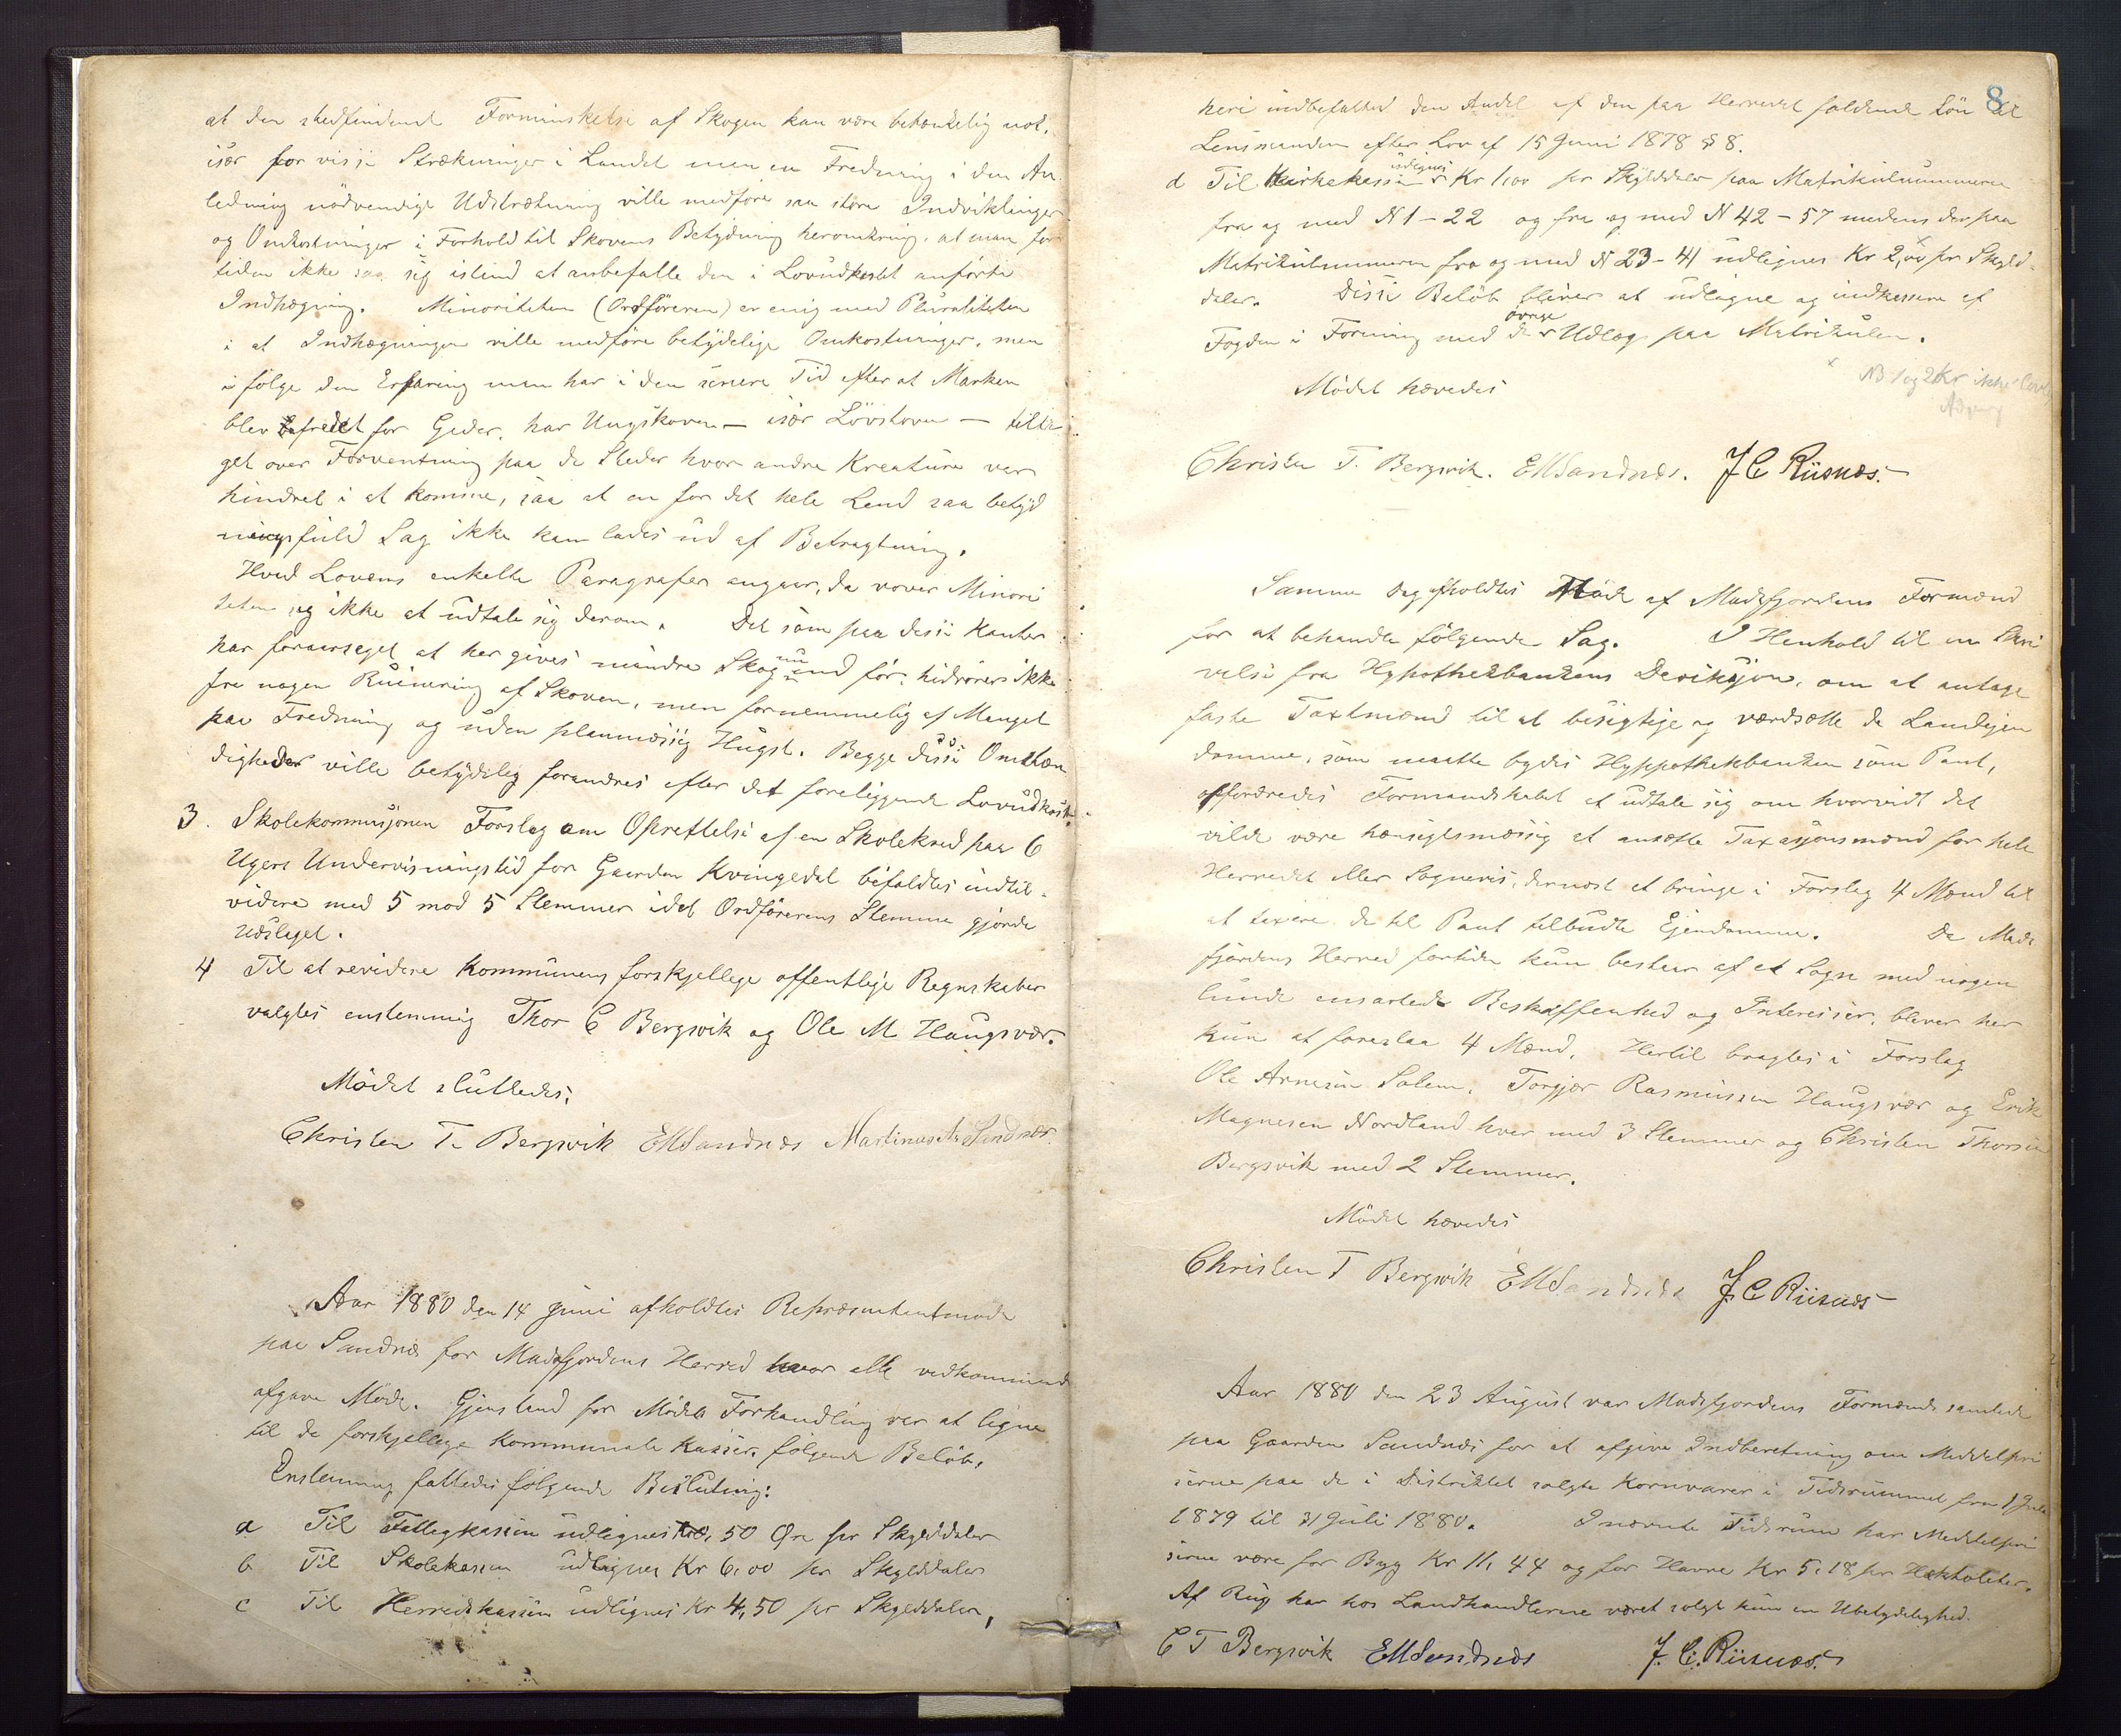 at den stedfindende Forminskelse af Skogen kan være betænkelig nok,
især for visse Strækninger i Landet men en Fredning i den An-
ledning nödvendige Udstrætning ville medföre saa störe Indviklinger
og Omkostninger i Forhold til Skovens Betydning heromkring, at man for
tiden ikke saa sig istand at anbefalle den i Lovudkastet anförte
Indhægning. Minoriteten (Ordföreren) er enig med Pluraliteten
i at Indhægningen ville medföre betydelige Omkostninger, men
i fölge den Erfaring man har i den senere Tid efter at Marken
blev befredet for Geder, har Ungskoven – især Lövskoven – tilta-
get over Forventning paa de Steder hvor andre Kreature var
hindret i at komme, saa at en for det hele Land saa betyd
ningsfuld Sag ikke kan lades ud af Betragtning.
Hvad Lovens enkelte Paragrafer angaar, da vover Minori
teten sig ikke at udtale sig derom. Det som paa disse Kanter
har foraarsaget at her gives mindre Skog nu end för, hidrörer ikke
fra nogen Ruinering af Skoven, men fornemmelig af Mangel
paa Fredning og uden planmæssig Hugst. Begge disse Omstæn
digheder ville betydelig forandres efter det foreliggende Lovudkast.
3. Skolekommisjonen Forslag om Oprettelse af en Skolekred paa 6
Ugers Undervisningstid for Gaarden Kvingedal bifaldtes indtil-
videre med 5 mod 5 Stemmer idet Ordförerens Stemme gjorde
Udslaget.
4 Til at revidere Kommunens forskjellege offentlige Regnskaber
valgtes enstemmig Thor C Bergsvik og Ole M Haugsvær.
Mödet sluttedes.
Christen T. Bergsvik EMSandnæs Martinus A. Sandnæs
Aar 1880 den 14 Juni afholdtes Repræsentantmöde
paa Sandnæs for Masfjordens Herred hvor alle vedkommende
afgave Möde. Gjenstand for Mödets Forhandling var at ligne
til de forskjellege Kommunale Kasser, fölgende Belöb.
Enstemmig fattedes fölgende Beslutning:
a Til Fattegkassen udlignes 50 Øre pr Skylddaler
b Til Skolekassen udlignes Kr 6,00 pr Skylddaler
c Til Herredskassen udlignes Kr 4,50 pr Skylddaler,
8
heri indbefatted den Andel af den paa Herredet faldende Lön til
Lensmanden efter Lov af 15 Juni 1878 § 8.
d Til Kirkekassen udlignes Kr 1,00 pr Skylddaler paa Matrikulnummerne
fra og med N 1–22 og fra og med N 42–57 medens der paa
Matrikulnummeren fra og med N 23–41 udlignes Kr 2,00 x pr Skyld-
daler. Disse Belöb bliver at udlægne og indkassere af
Fogden i Forening med de övrige Udlæg paa Matrikulen.
x NB 1 og 2 Kr ikke
Mödet hævedes
Christen T. Bergsvik. EMSandnæs. J C Riisnæs.
Samme Dag afholdtes Möde af Masfjordens Formænd
for at behandle fölgende Sag. I Henhold til en Skri
velse fra Hypothekbankens Direksjon, om at antage
faste Taxtmænd til at besigtige og værdsætte de Landejen
domme, som maatte bydes Hyppothekbanken som Pant,
opfordredes Formandskabet at udtale sig om hvorvidt det
vilde være hænsigtsmæssig at ansætte Taxasjonsmænd for hele
Herredet eller Sognevis, dernæst at bringe i Forslag 4 Mænd til
at taxere de til Pant tilbudte Ejendomme. Da Mas
fjordens Herred fortiden kun bestaar af et Sogn med nogen
lunde ensartede Beskaffenhed og Interesser, bliver her
kun at foreslaa 4 Mænd. Hertil bragtes i Forslag
Ole Arnesen Solem, Torgjer Rasmussen Haugsvær og Erik
Magnesen Nordland hver med 3 Stemmer og Christen Thorsen
Bergsvik med 2 Stemmer.
Mödet hævedes
Christen T Bergsvik EMSandnæs J C Riisnæs
Aar 1880 den 23 August var Masfjordens Formænd samlede
paa Gaarden Sandnæs for at afgive Indberetning om Middelpri
serne paa de i Distriktet solgte Kornvarer i Tidsrummet fra 1 Juli
1879 til 31 Juli 1880. I nævnte Tidsrum har Middelpri
serne være for Byg Kr 11,44 og for Havre Kr 5,18 pr Hektoliter.
Af Rug har hos Landhandlerne været solgt kun en Ubetydelighed.
C T Bergsvik EMSandnæs J. C. Riisnæs.